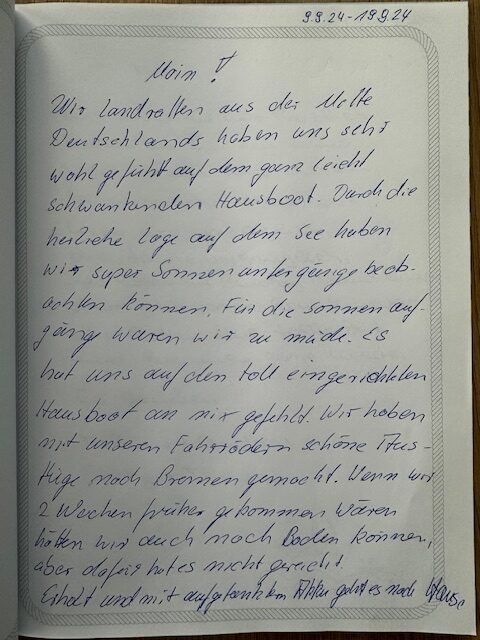 9.9.24 - 19.9.24
Moin!
Wir Landratten aus der Mitte
Deutschlands haben uns sehr
wohl gefühlt auf dem ganz leicht
schwankenden Hausboot. Durch die
herrliche Lage auf dem See haben
wir super Sonnenuntergänge beob-
achten können, für die Sonnenauf-
gänge waren wir zu müde. Es
hat uns auf den toll eingerichteten
Hausboot an nix gefehlt. Wir haben
mit unseren Fahrrädern schöne Aus-
flüge nach Bremen gemacht. Wenn wir
2 Wochen früher gekommen wären
hätten wir auch noch Baden können,
aber dafür hat es nicht gereicht.
Erholt und mit aufgetankten Akkus geht es nach Hause